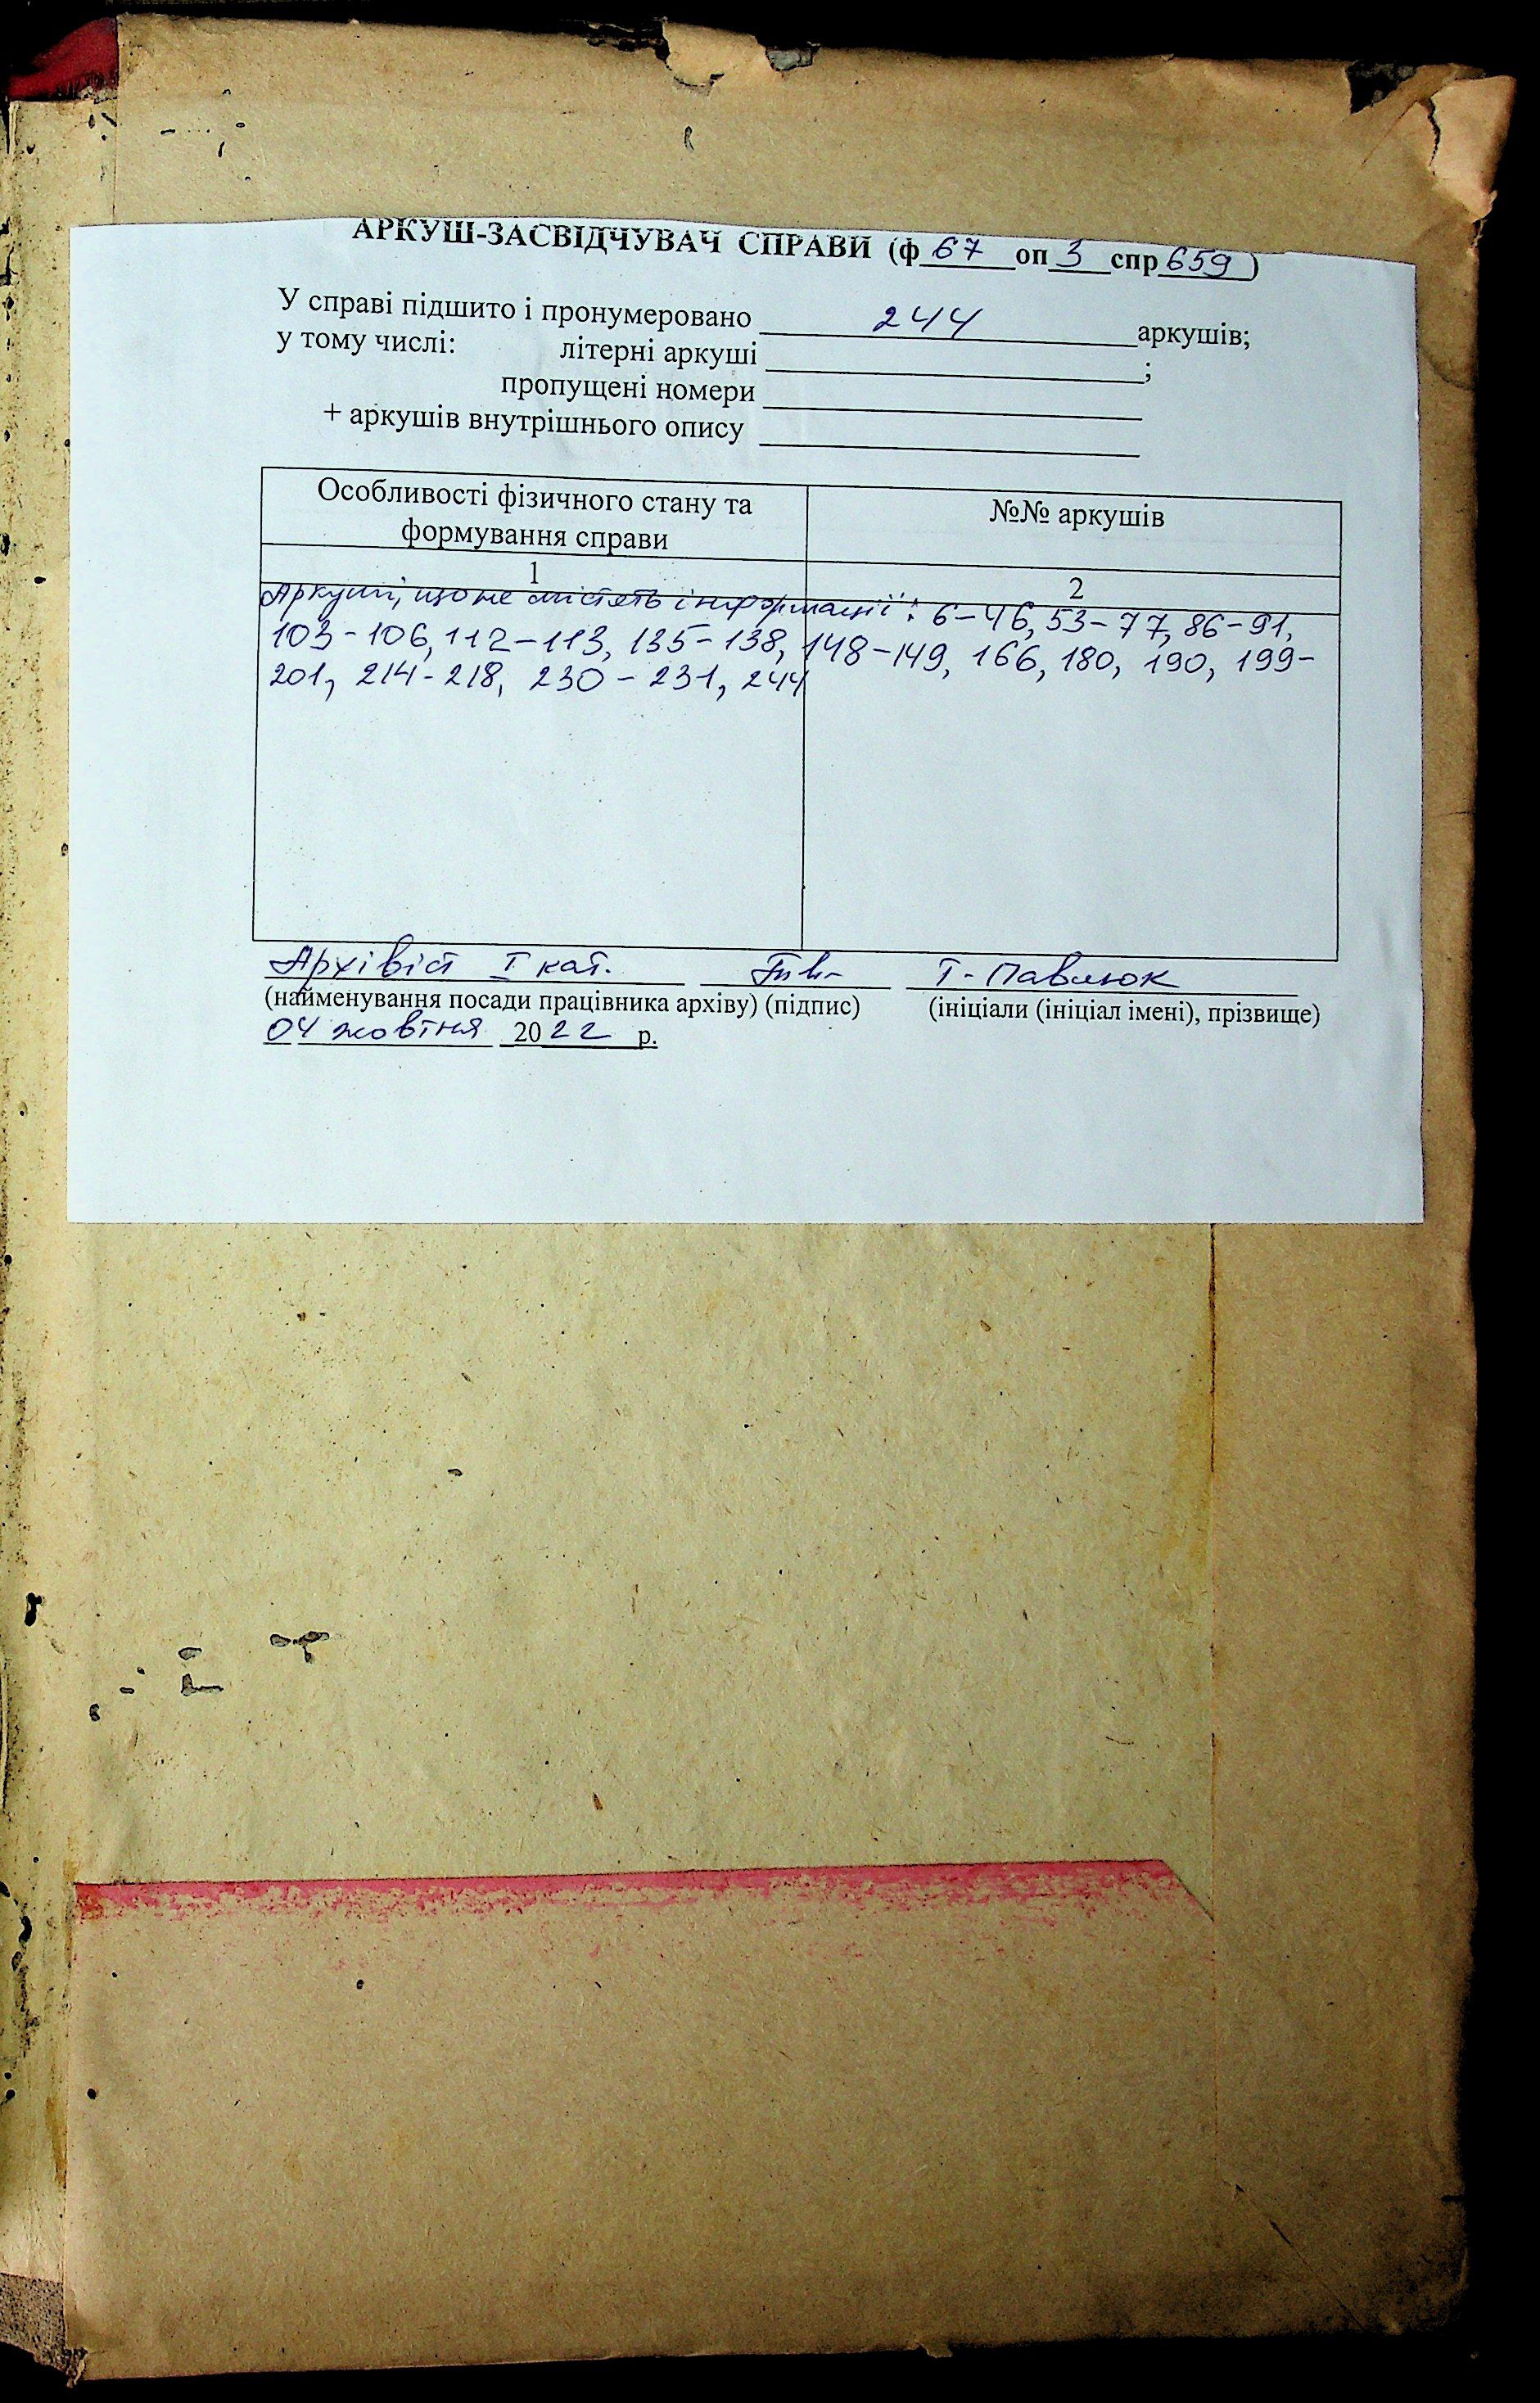 АРКУШ-ЗАСВІДЧУВАЧ СПРАВИ (ф 67 оп 3 спр 659)
У справі підшито і пронумеровано 244 аркушів;
у тому числі: літерні аркуші ;
пропущені номери
+ аркушів внутрішнього опису
Особливості фізичного стану та формування справи
№№ аркушів
1
2
Аркуші, що не містять інформації: 6-46, 53-77, 86-91,
103-106, 112-113, 135-138, 148-149, 166, 180, 190, 199-
201, 214-218, 230-231, 244
Архівіст I кат. Т. Павлюк
(найменування посади працівника архіву) (підпис) (ініціали (ініціал імені), прізвище)
04 жовтня 2022 р.